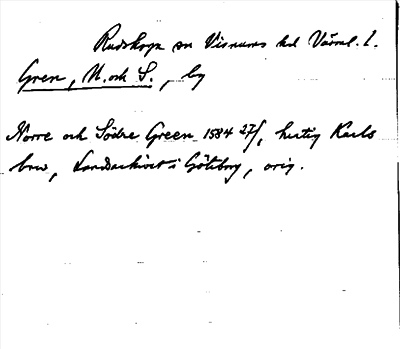 Rudskoga sn Visnums hd Värml. l.
Gren, N. och S., by
Norre och Södre Green 1584 27/, hertig Karls
brev, Landsarkivet i Göteborg, orig.